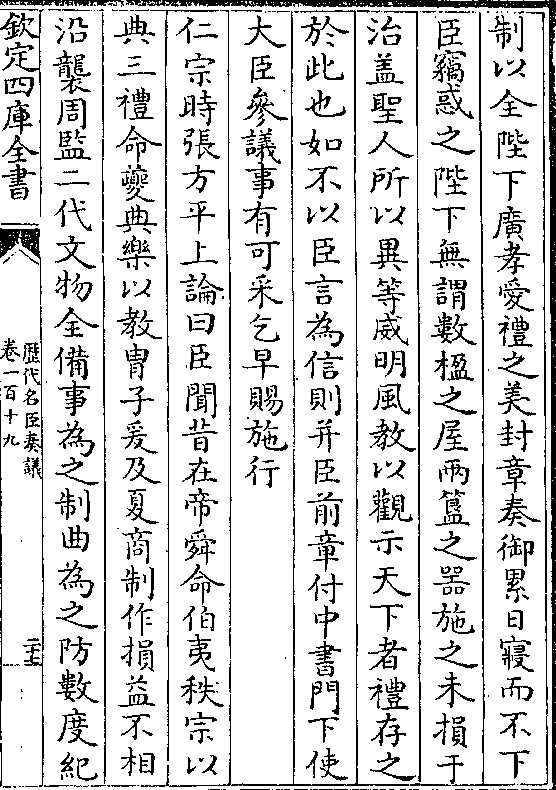 制以全陛下廣孝愛禮之美封章奏御累日寢而不下
臣竊惑之陛下無謂數楹之屋兩簋之器施之未損于
治盖聖人所以異等威明風教以觀示天下者禮存之
於此也如不以臣言為信則并臣前章付中書門下使
大臣參議事有可采乞早賜施行
仁宗時張方平上論曰臣聞昔在帝舜命伯夷秩宗以
典三禮命夔典樂以教胄子爰及夏商制作損益不相
沿襲周監二代文物全備事為之制曲為之防數度紀
欽定四庫全書
歷代名臣奏議
卷一百十九
二十七